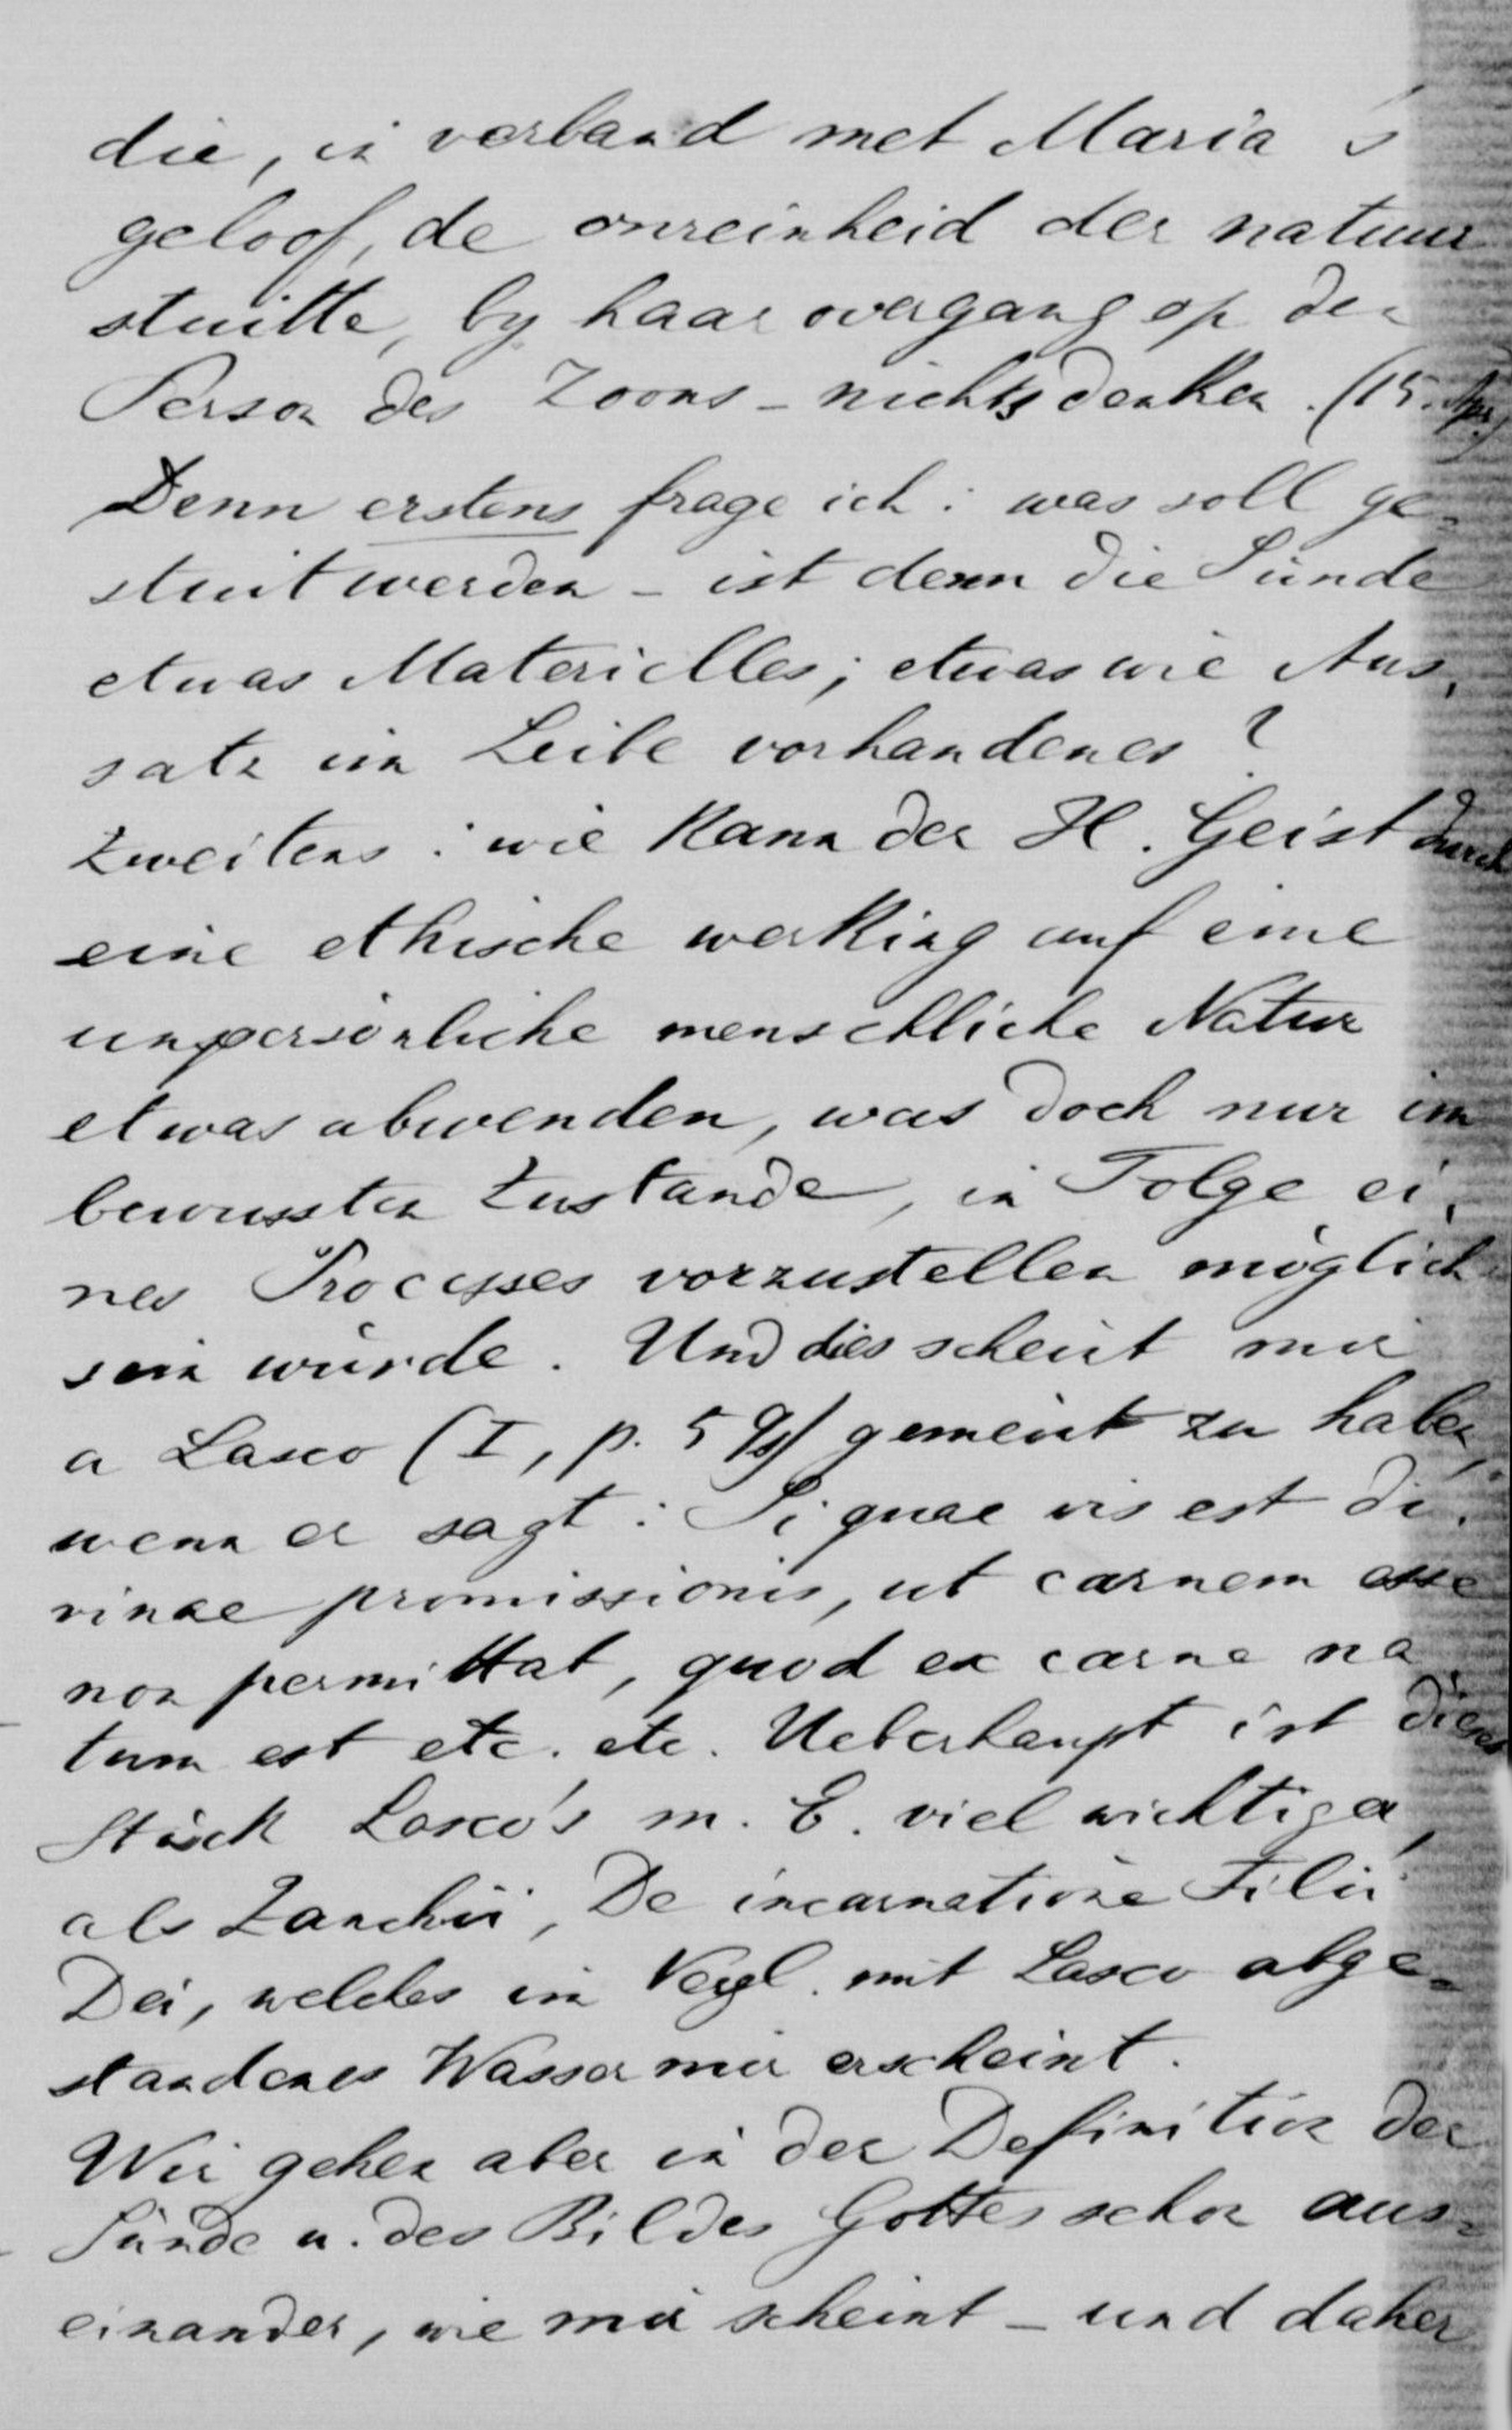 die, in verband met Maria's
geloof, de onreinheid der natuur
stuitte, by haar overgang op den
Person des Zoons - nichts denken. (15. Apr.)
Denn erstens frage ich: was soll ge-
stuit werden - ist denn die Sünde
etwas Materielles; etwas wie Aus-
satz im Leibe vorhandenes?
Zweitens: wie kann der H. Geist durch
eine ethische werking auf eine
unpersönliche menschliche Natur
etwas abwenden, was doch nur im
bewussten Zustande, in Folge ei-
nes Processes vorzustellen möglich
sein würde. Und dies scheint mir
a Lasco (I, p. 5 ) gemeint zu haben,
wenn er sagt: Si quae vis est di-
vinae promissionis, ut carnem esse
non permittat, quod ex carne na
tum est etc. etc. Ueberhaupt ist dieses
Stück Lasco's m. E. viel wichtiger,
als Zanchii, De incarnatione Filii
Dei, welches im Vergl. mit Lasco abge-
standenes Wasser mir erscheint.
Wir gehen aber in der Definition der
Sünde u. des Bildes Gottes schon aus-
einander, wie mir scheint - und daher